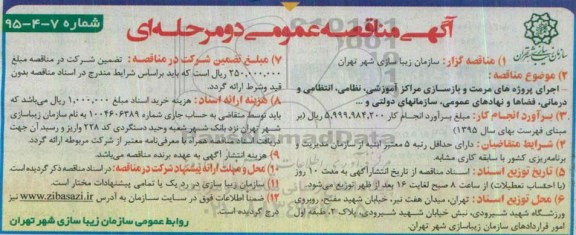 آگهی مناقصه عمومی دو مرحله‌ای
شماره ۷-۴-۹۵
سازمان زیباسازی شهر تهران
۱) مناقصه گزار: سازمان زیبا سازی شهر تهران
۲) موضوع مناقصه:
– اجرای پروژه های مرمت و بازسازی مراکز آموزشی، نظامی، انتظامی و
درمانی، فضاها و نهادهای عمومی، سازمانهای دولتی و ...
۳) برآورد انجام کار: مبلغ برآورد انجام کار ۵.۹۹۹.۹۸۴.۳۰۰ ریال (بر
مبنای فهرست بهای سال ۱۳۹۵)
۴) شرایط متقاضیان: دارای حداقل رتبه ۵ معتبر ابنیه از سازمان مدیریت و
برنامه‌ریزی کشور با سابقه کاری مشابه.
۵) تاریخ توزیع اسناد: اسناد مناقصه از تاریخ انتشار آگهی به مدت ۱۰ روز
(با احتساب تعطیلات) از ساعت ۸ صبح لغایت ۱۶ بعد از ظهر توزیع می‌شود.
۶) محل توزیع اسناد: تهران، میدان هفت تیر، خیابان شهید مفتح، روبروی
ورزشگاه شهید شیرودی، نبش خیابان شهید شیرودی، پلاک ۲، طبقه اول
امور قراردادهای سازمان زیباسازی شهر تهران.
۷) مبلغ تضمین شرکت در مناقصه: تضمین شرکت در مناقصه مبلغ
۲۵۰.۰۰۰.۰۰۰ ریال است که باید براساس شرایط مندرج در اسناد مناقصه بدون
قید وشرط ارائه گردد.
۸) هزینه ارائه اسناد: هزینه خرید اسناد مبلغ ۱.۰۰۰.۰۰۰ ریال می‌باشد که
باید توسط متقاضی به حساب جاری شماره ۱۰۰۴۶۰۶۳۸۹ به نام سازمان زیباسازی
شهر تهران نزد بانک شهر شعبه وحید دستگردی کد ۲۲۸ واریز و رسید آن جهت
دریافت اسناد به همراه با معرفی‌نامه معتبر از شرکت مربوطه ارائه گردد.
۹) هزینه انتشار آگهی به عهده برنده مناقصه می‌باشد.
۱۰) محل و مهلت ارائه پیشنهاد شرکت در مناقصه: در اسناد مناقصه ذکر گردیده است
۱۱) سازمان زیبا سازی در رد یک یا تمامی پیشنهادات مختار است.
۱۲) ضمنا اطلاعات فوق در سایت سازمان به آدرس www.zibasazi.ir نیز
درج گردیده است.
روابط عمومی سازمان زیبا سازی شهر تهران